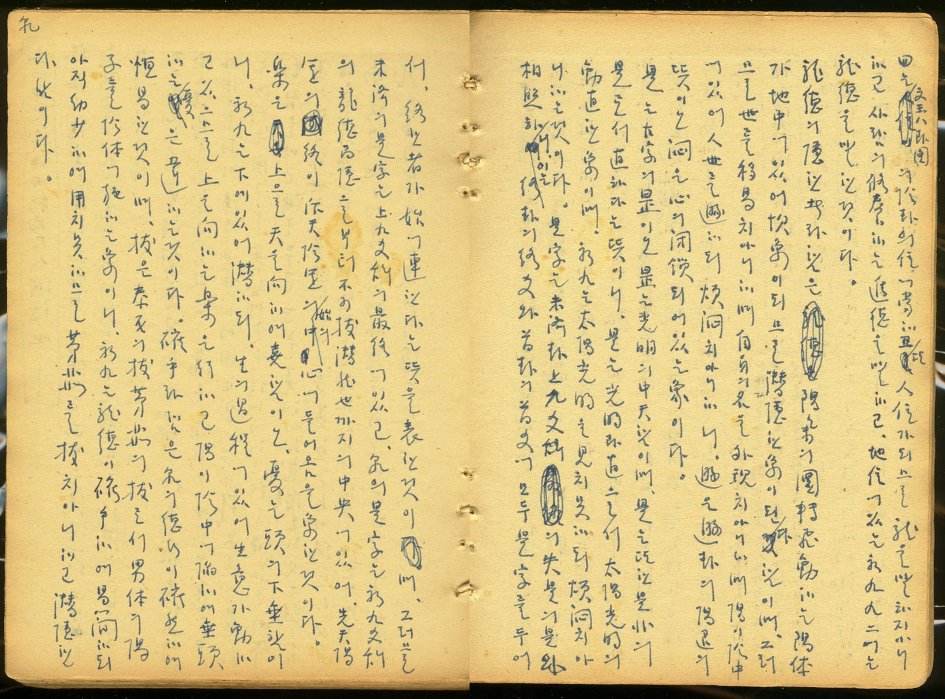 田은 文王八卦圖의 卦의位에當하고 人位가되므로 龍을말하지아니
하고 사람의修養하는進德을말하고, 地位에있는初九九二에는
龍德을말한것이다。
龍德의隱한者라함은 陽氣의團轉飛動하는陽体
가 地中에있어 坎象이되므로 潛隱한象이된다함이며, 그러
므로 世를移易치아니하며 自身의名을 外現치아니하며 陽이陰中
에있어 人世를遯하되 煩悶치아니하니, 遯은遯卦의陽退의
뜻이오 悶은心의閉鎖되어있는象이다。
是는古字의昰이오 昰는光明의中天함이며, 是는또한是非의
是로서 直하다는뜻이니, 是는光明하고直으로서 太陽光明의
動直한象이며, 初九는太陽光明을見치못하되 煩悶치아
니하는것이다。 是字는未濟卦上九爻辭의失是의是와
相照하여있는 終卦의終爻와首卦의首爻에 모두是字를두어
乾
서, 終한者가 始에連한다는뜻을表한것이며, 그러므로
未濟의是字는上九爻辭의最終에있고, 乾의是字는初九爻辭
의 龍德而隱으로부터 不可拔潛龍也까지의中央에있어, 先天陽
의 終이 后天陰 의始의中心에들어옴을象한것이다。
樂은 上으로天을向하여喜함이오, 憂는頭의下垂함이
니, 初九는下에있어潛하되, 生의過程에있어生意가動하
고있으므로 上으로向하는樂을行하고 陽이陰中에陷하여垂頭
하는憂은 違하는것이다。確乎라함은乾의德行이確然하여
恒易한것이며, 拔은泰 의拔茅茹의拔로서 男体의陽
子를陰体에施하는象이니, 初九는龍德이確乎하여易簡하되
아직幼少하여用치못하므로 茅茹를拔치아니하고 潛隱한
다함이다。